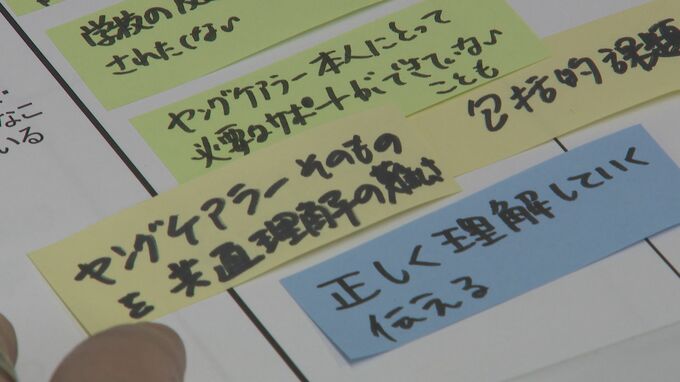 学校の
されたくない
ヤングケアラー本人にとって
必要なサポートができていない
ことも
包括的課題
ヤングケアラーそのもの
を共通理解の難しさ
正しく理解していく
伝える
なこ
いる